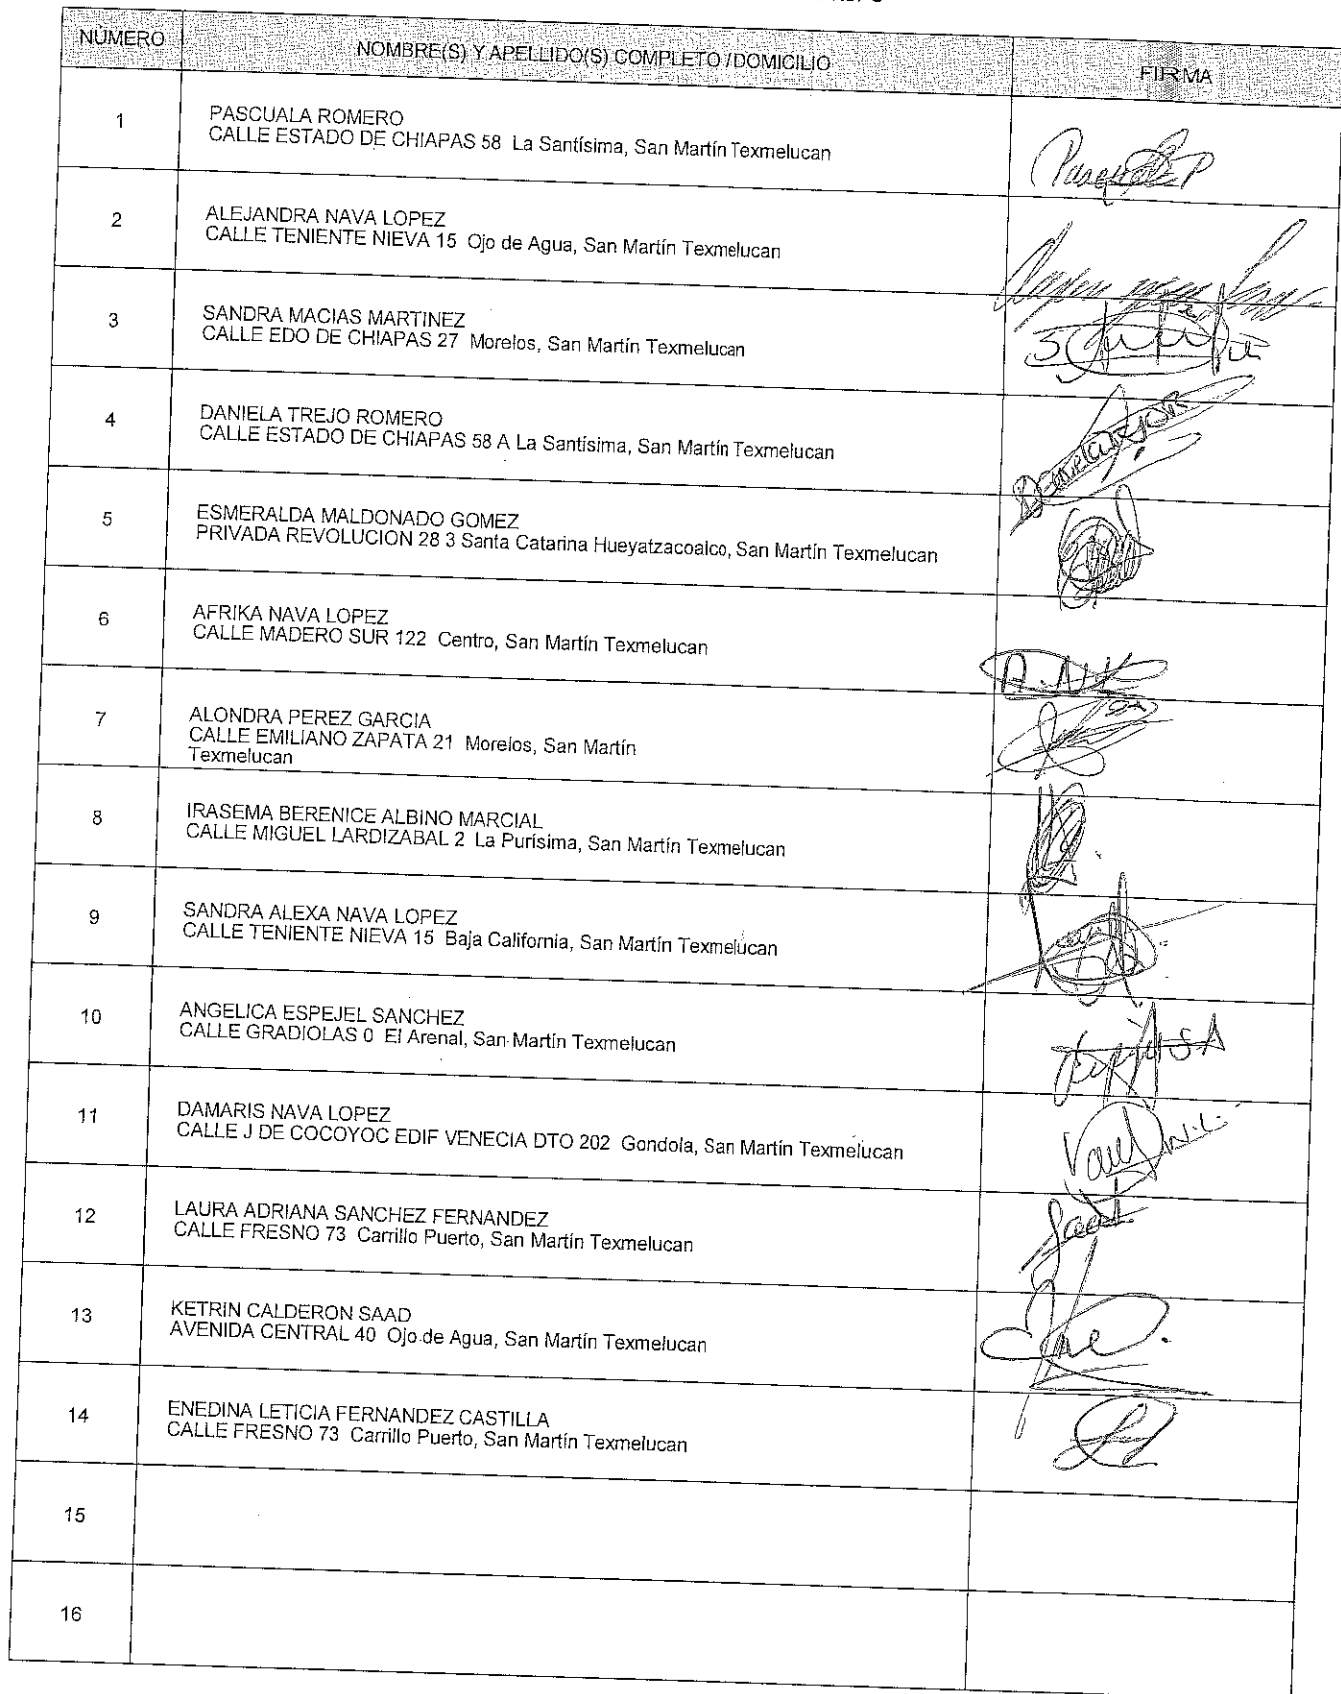 NÚMERO NOMBRE(S) Y APELLIDO(S) COMPLETO / DOMICILIO FIRMA
1 PASCUALA ROMERO
CALLE ESTADO DE CHIAPAS 58 La Santísima, San Martín Texmelucan
2 ALEJANDRA NAVA LOPEZ
CALLE TENIENTE NIEVA 15 Ojo de Agua, San Martín Texmelucan
3 SANDRA MACIAS MARTINEZ
CALLE EDO DE CHIAPAS 27 Morelos, San Martín Texmelucan
4 DANIELA TREJO ROMERO
CALLE ESTADO DE CHIAPAS 58 A La Santísima, San Martín Texmelucan
5 ESMERALDA MALDONADO GOMEZ
PRIVADA REVOLUCION 28 3 Santa Catarina Hueyatzacoalco, San Martín Texmelucan
6 AFRIKA NAVA LOPEZ
CALLE MADERO SUR 122 Centro, San Martín Texmelucan
7 ALONDRA PEREZ GARCIA
CALLE EMILIANO ZAPATA 21 Morelos, San Martín
Texmelucan
8 IRASEMA BERENICE ALBINO MARCIAL
CALLE MIGUEL LARDIZABAL 2 La Purísima, San Martín Texmelucan
9 SANDRA ALEXA NAVA LOPEZ
CALLE TENIENTE NIEVA 15 Baja California, San Martín Texmelucan
10 ANGELICA ESPEJEL SANCHEZ
CALLE GRADIOLAS 0 El Arenal, San Martín Texmelucan
11 DAMARIS NAVA LOPEZ
CALLE J DE COCOYOC EDIF VENECIA DTO 202 Gondola, San Martín Texmelucan
12 LAURA ADRIANA SANCHEZ FERNANDEZ
CALLE FRESNO 73 Carrillo Puerto, San Martín Texmelucan
13 KETRIN CALDERON SAAD
AVENIDA CENTRAL 40 Ojo de Agua, San Martín Texmelucan
14 ENEDINA LETICIA FERNANDEZ CASTILLA
CALLE FRESNO 73 Carrillo Puerto, San Martín Texmelucan
15
16